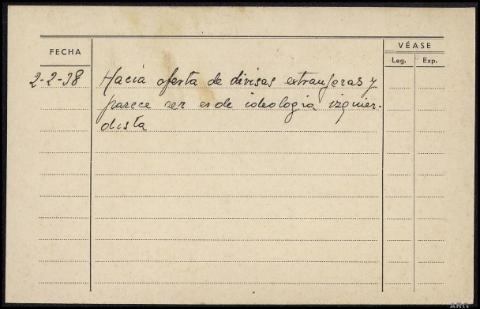 FECHA
VÉASE
Leg. Exp.
2-2-38 Hacía oferta de divisas extranjeras y
parece ser es de ideología izquier-
dista